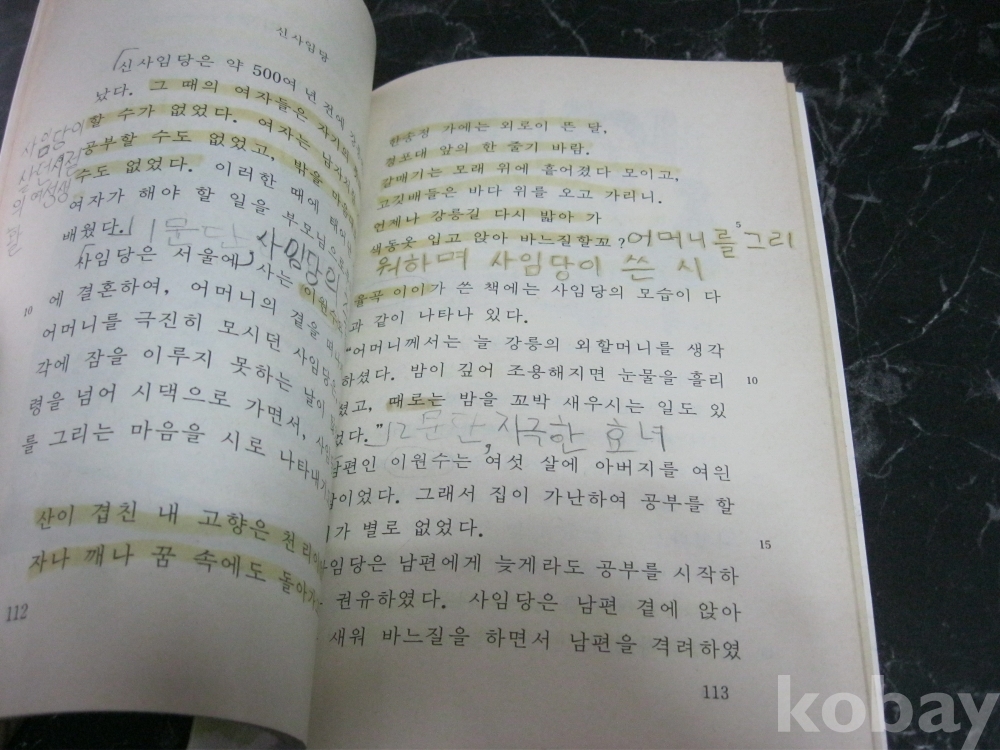 신사임당
신사임당은 약 500여 년 전에
났다. 그 때의 여자들은 자기의
할 수가 없었다. 여자는 남자처럼
공부할 수도 없었고, 밖을 마음대
수도 없었다. 이러한 때에 태어
여자가 해야 할 일을 부모님으로
배웠다. 1문단, 사임당의
사임당이
의 여성생
사임당은 서울에 사는 이원수
에 결혼하여, 어머니의 곁을 떠
어머니를 극진히 모시던 사임당은
각에 잠을 이루지 못하는 날이
령을 넘어 시댁으로 가면서, 사임
를 그리는 마음을 시로 나타내
산이 겹친 내 고향은 천 리이
자나 깨나 꿈 속에도 돌아가
10
112
한송정 가에는 외로이 뜬 달,
경포대 앞의 한 줄기 바람.
갈매기는 모래 위에 흩어졌다 모이고,
고깃배들은 바다 위를 오고 가리니.
언제나 강릉길 다시 밟아 가
5
색동옷 입고 앉아 바느질할꼬? 어머니를 그리
워하며 사임당이 쓴 시
율곡 이이가 쓴 책에는 사임당의 모습이 다
과 같이 나타나 있다.
"어머니께서는 늘 강릉의 외할머니를 생각
하셨다. 밤이 깊어 조용해지면 눈물을 흘리
10
셨고, 때로는 밤을 꼬박 새우시는 일도 있
었다." 2문단, 지극한 효녀
남편인 이원수는 여섯 살에 아버지를 여윈
람이었다. 그래서 집이 가난하여 공부를 할
가 별로 없었다.
15
임당은 남편에게 늦게라도 공부를 시작하
권유하였다. 사임당은 남편 곁에 앉아
새워 바느질을 하면서 남편을 격려하였
113
kobay